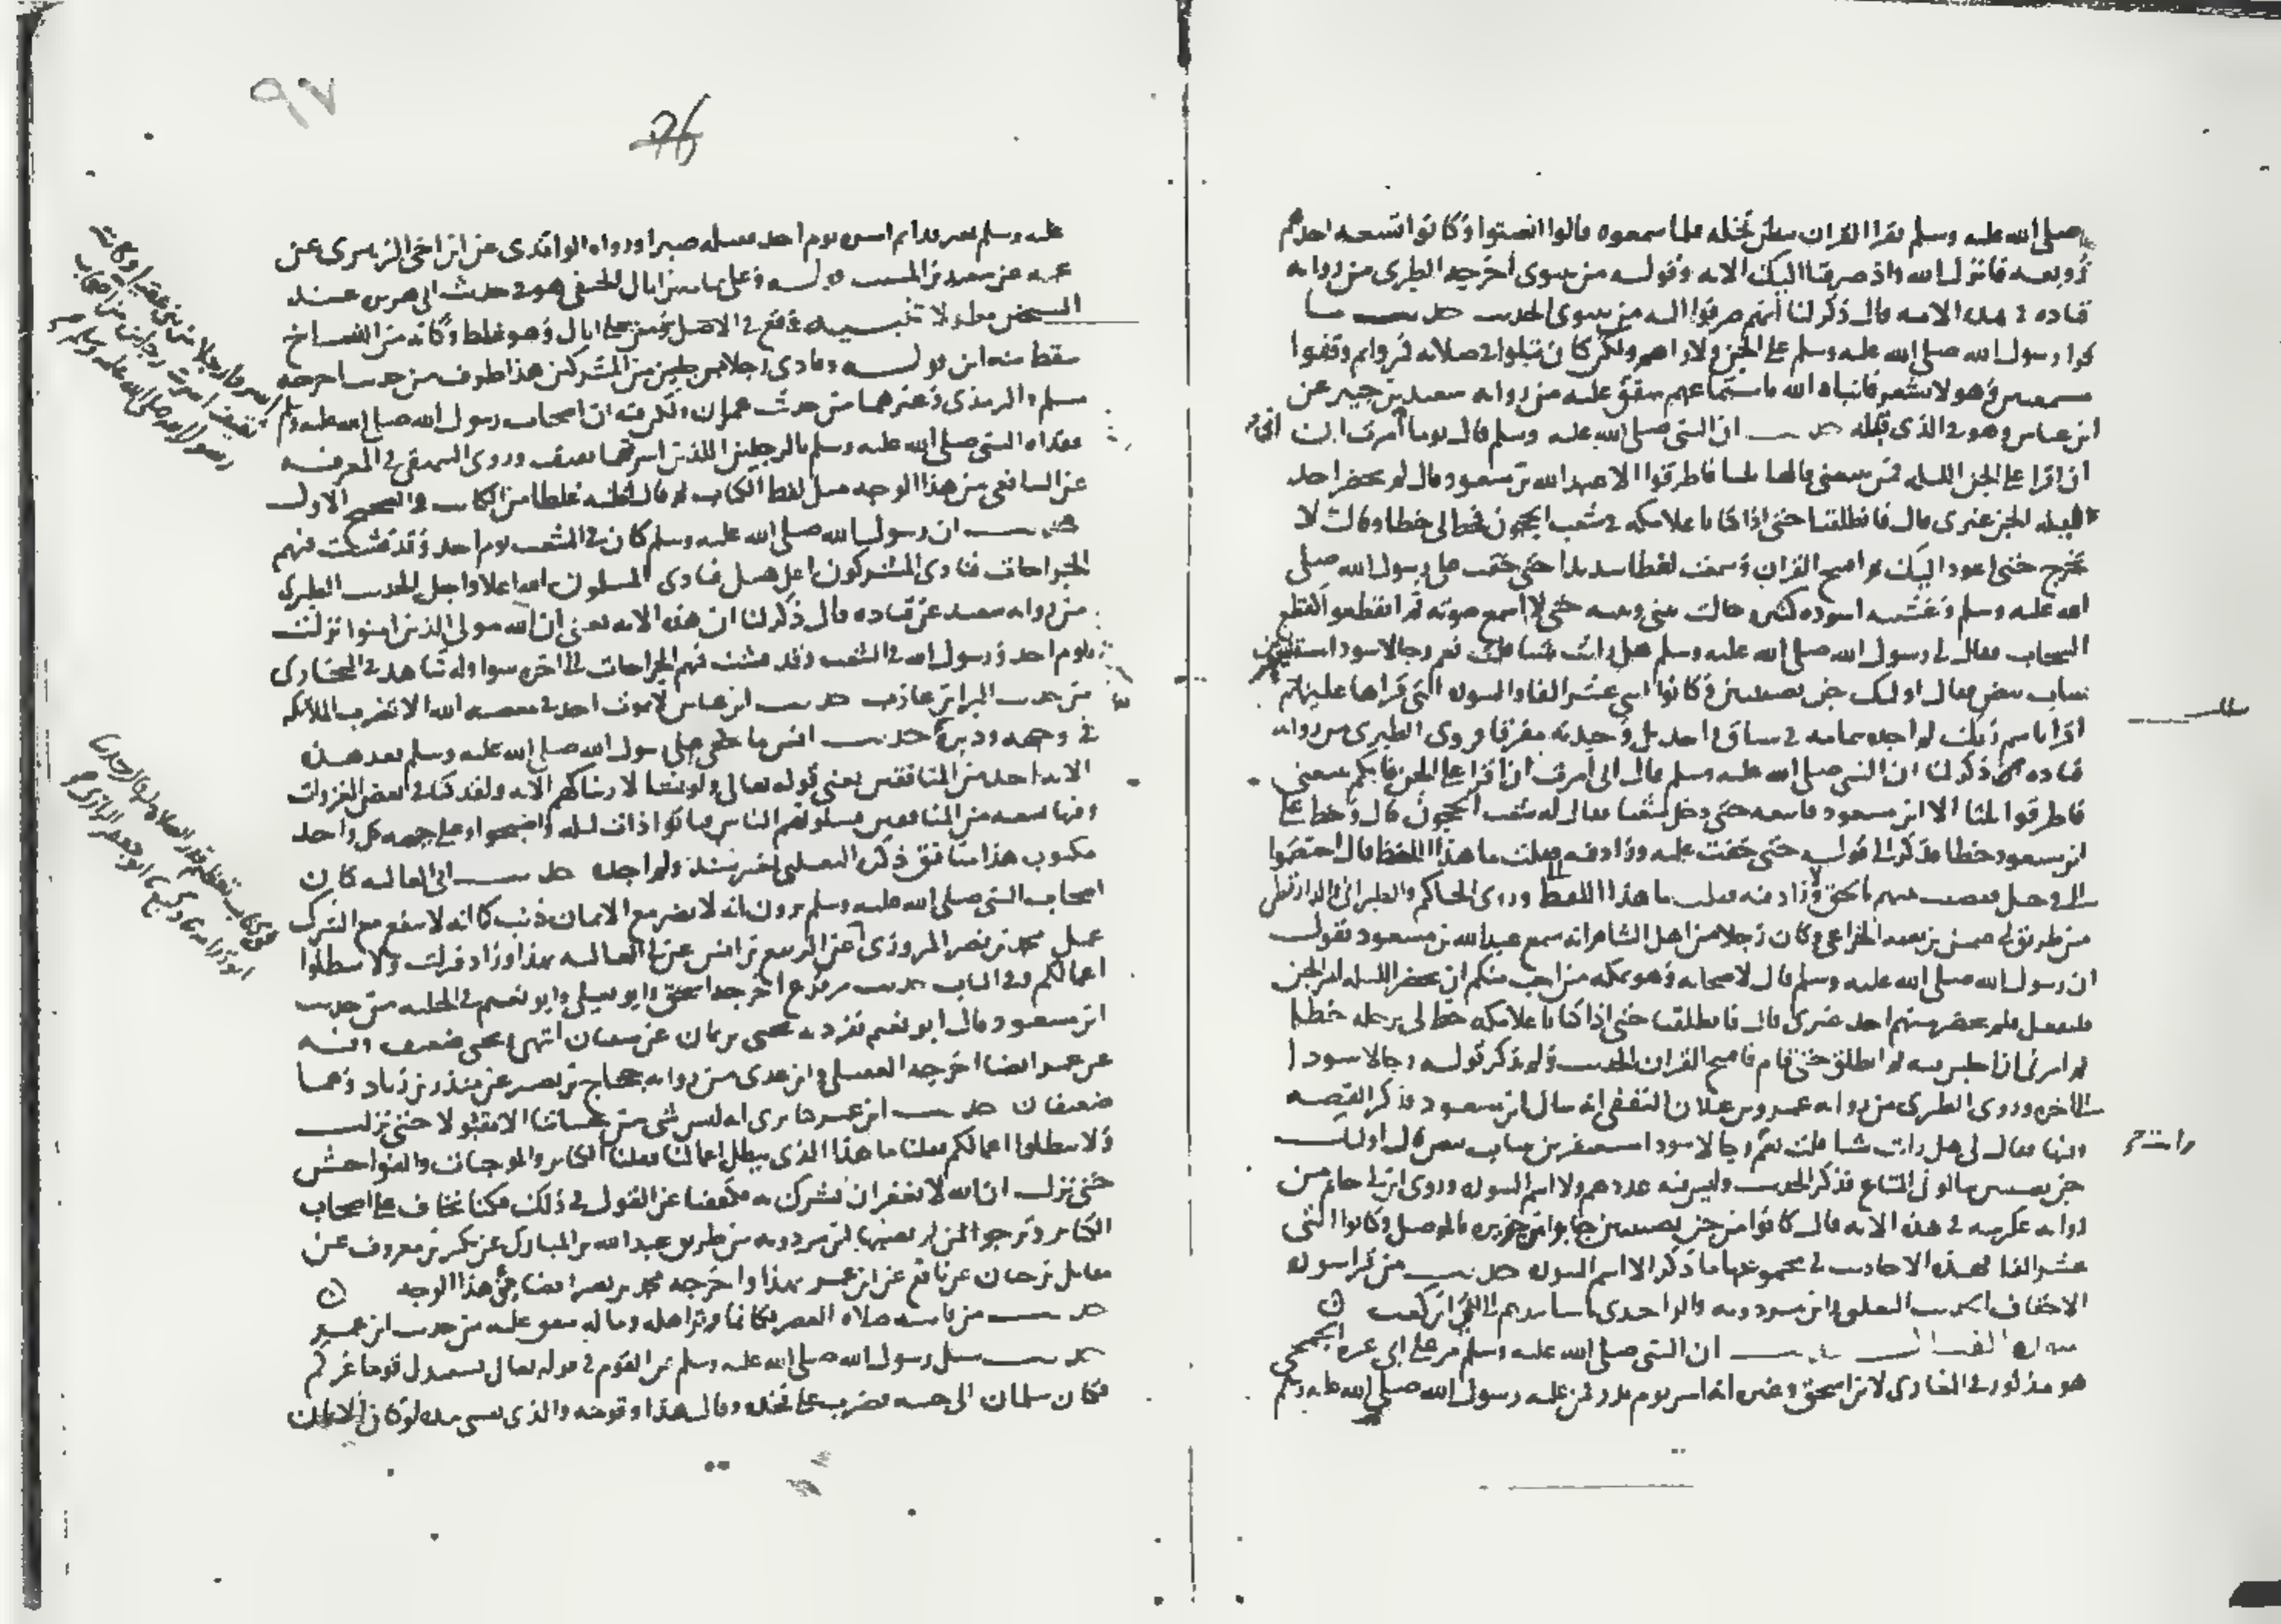 صلى الله عليه وسلم يقرا القران ببطن نخله فلما سمعوه قالوا انصتوا وكانوا تسعه احدهم
زوبعه فانزل الله واذ صرفنا اليك الايه وقوله من نينوى اخرجه الطبرى من روايه
قتاده فى هذه الايه قال ذكر لنا انهم صرفوا اليه من نينوى الحديث حديث ما
قرا رسول الله صلى الله عليه وسلم على الجن ولا راهم ولكن كان يتلوا فى صلاته فمروا به فوقفوا
مستمعين وهو لا يشعر فانباه الله باستماعهم متفق عليه من روايه سعيد بن جبير عن
ابن عباس وهو فى الذى قبله حديث ان النبى صلى الله عليه وسلم قال يوما امرت ان
ان اقرا على الجن الليله فمن يتبعنى قالها ثلثا فاطرقوا الا عبد الله بن مسعود قال لم يحضر احد
ليله الجن غيرى قال فانطلقنا حتى اذا كنا باعلا مكه فى شعب الحجون خط لى خطا وقال لا
تخرج حتى اعود اليك ثم افتتح القران وسمعت لغطا شديدا حتى خفت على رسول الله صلى
الله عليه وسلم وغشيه اسوده كثيره حالت بينى وبينه حتى لا اسمع صوته ثم انقطعوا كقطع
السحاب فقال لى رسول الله صلى الله عليه وسلم هل رايت شيا قلت نعم رجالا سودا
ثياب بيض فقال اوليك جن نصيبين وكانوا اثنى عشر الفا والسوره التى قراها عليهم
اقرا باسم ربك لم اجده بتمامه فى سياق احد بل وجدته مفرقا فروى الطبرى من روايه
قتاده قال ذكر لنا ان النبى صلى الله عليه وسلم قال انى امرت ان اقرا على الجن فايكم يتبعنى
فاطرقوا ثلثا الا ابن مسعود فاتبعه حتى دخل شعبا يقال له شعب الحجون قال وخط على
ابن مسعود خطا فذكر الى قوله حتى خفت عليه وزاد فيه فقلت ما هذا اللغط قال اختصموا
الى فى قتيل فقضيت بينهم بالحق وروى الحاكم والطبرانى والدارقطنى
من طريق ابى عثمن بن سنه الخزاعى وكان رجلا من اهل الشام انه سمع عبد الله بن مسعود يقول
ان رسول الله صلى الله عليه وسلم قال لاصحابه وهو بمكه من احب منكم ان يحضر الليله امر الجن
فليفعل فلم يحضر منهم احد غيرى قال فانطلقنا حتى اذا كنا باعلا مكه خط لى برجله خطا
ثم امرنى ان اجلس فيه ثم انطلق حتى قام فافتتح القران الحديث ولم يذكر قوله رجالا سودا
الى اخره وروى الطبرى من روايه عمرو بن غيلان الثقفى انه سال ابن مسعود فذكر القصه
وفيها فقال لى هل رايت شيا قلت نعم رجالا سودا مستثفرين ثياب بيض قال اوليك
جن نصيبين سالونى المتاع فذكر الحديث وليس فيه عددهم ولا اسم السوره وروى ابن ابى حاتم من
روايه عكرمه فى هذه الايه قال كانوا من جن نصيبين جاوا من جزيره الموصل وكانوا اثنى
عشر الفا فهذه الاحاديث فى مجموعها ما ذكر الا اسم السوره حديث من قرا سوره
الاحقاف الحديث الثعلبى وابن مردويه والواحدى باسانيدهم الى ابى ابن كعب
سوره القتال حديث ان النبى صلى الله عليه وسلم من على ابى عزه الجمحى
هو مذكور فى المغازى لابن اسحق وغيره انه اسر يوم بدر فمن عليه رسول الله صلى الله عليه وسلم
رايت
٩٧
96
عليه وسلم بغير فداء ثم اسر يوم احد فقتله صبرا ورواه الواقدى عن ابن اخى الزهرى عن
عمه عن سعيد بن المسيب قوله وعلى ثمامه بن اثال الحنفى هو فى حديث ابى هريره عند
الشيخين مطولا تنبيه وقع فى الاصل وعلى اثال وهو غلط وكانه من النساخ
سقط منه ابن قوله وفادى رجلا برجلين من المشركين هذا طرف من حديث اخرجه
مسلم والترمذى وغيرهما من حديث عمران ولكن فيه ان اصحاب رسول الله صلى الله عليه وسلم
ففداه النبى صلى الله عليه وسلم بالرجلين اللذين اسرتهما ثقيف وروى البيهقى فى المعرفه
عن الشافعى من هذا الوجه مثل لفظ الكتاب ثم قال اظنه غلطا من الكاتب والصحيح الاول
حديث ان رسول الله صلى الله عليه وسلم كان فى الشعب يوم احد وقد فشت فيهم
الجراحات فنادى المشركون اعل هبل فنادى المسلمون الله اعلا واجل الحديث الطبرى
من روايه سعيد عن قتاده قال ذكر لنا ان هذه الايه يعنى ان الله مولى الذين امنوا نزلت
يوم احد ورسول الله فى الشعب وقد فشت فيهم الجراحات الى اخره سوا وله شاهد فى البخارى
من حديث البرا بن عازب حديث ابن عباس لا يموت احد فى معصيه الله الا تضرب الملائكه
فى وجهه ودبره حديث انس ما خفى على رسول الله صلى الله عليه وسلم بعد هذه
الايه احد من المنافقين يعنى قوله تعالى ولو نشا لاريناكهم الايه ولقد كنا فى بعض الغزوات
وفيها تسعه من المنافقين يشكوهم الناس فناموا ذات ليله واصبحوا وعلى جبهه كل واحد
مكتوب هذا منافق ذكره الثعلبى بغير سند ولم اجده حديث ابى العاليه كان
اصحاب النبى صلى الله عليه وسلم يرون انه لا يضر مع الايمان ذنب كما انه لا ينفع مع الشرك
عمل محمد بن نصر المروزى عن الربيع بن انس عن ابى العاليه بهذا وزاد فنزلت ولا تبطلوا
اعمالكم وفى الباب حديث مرفوع اخرجه اسحق وابو يعلى وابو نعيم فى الحليه من حديث
ابن مسعود وقال ابو نعيم تفرد به يحيى بن يمان عن سفيان انتهى ويحيى ضعيف وفيه
عن عمر ايضا اخرجه العقيلى وابن عدى من روايه حجاج بن نصير عن منذر بن زياد وهما
ضعيفان حديث ابن عمر كنا نرى انه ليس شى من حسناتنا الا مقبولا حتى نزلت
ولا تبطلوا اعمالكم فقلنا ما هذا الذى يبطل اعمالنا فقلنا الكبائر والموجبات والفواحش
حتى نزلت ان الله لا يغفر ان يشرك به فكففنا عن القول فى ذلك فكنا نخاف على اصحاب
الكبائر ونرجو لمن لم يصبها ابن مردويه من طريق عبد الله بن المبارك عن بكير بن معروف عن
مقاتل بن حيان عن نافع عن ابن عمر بهذا واخرجه محمد بن نصر ايضا من هذا الوجه
حديث من فاتته صلاه العصر فكانما وتر اهله وماله متفق عليه من حديث ابن عمر
حديث سئل رسول الله صلى الله عليه وسلم عن القوم فى قوله تعالى يستبدل قوما غيركم
وكان سلمان الى جنبه فضرب على فخذه وقال هذا وقومه والذى نفسى بيده لو كان الايمان